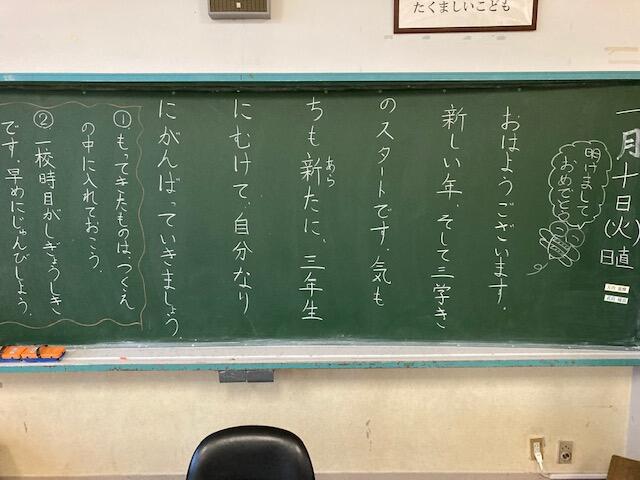 たくましいこども
一月十日(火)
日直
明けまして
おめでとう
おはようございます.
新しい年、そして三学き
のスタートです.気も
ちも新たに、三年生
あら
にむけて、自分なり
にがんばっていきましょう.
①.もってきたものは、つくえ
の中に入れておこう.
②一校時目がしぎょうしき
です.早めにじゅんびしよう.